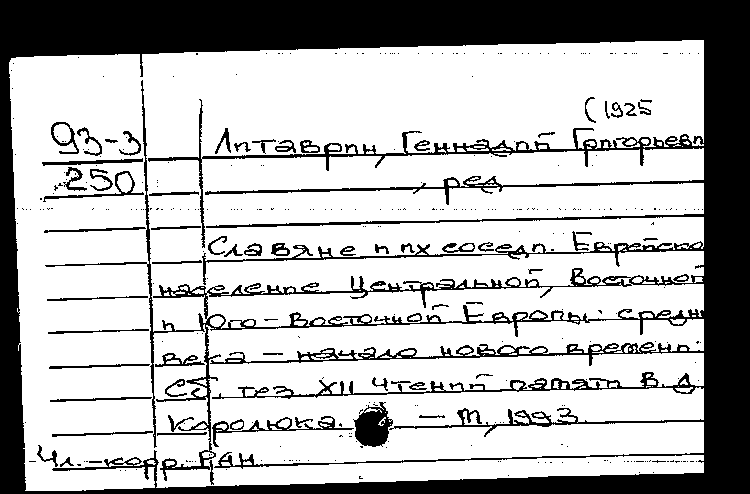 (1925
93-3 Литаврин, Геннадий Григорьеви
250 , ред
Славяне и их соседи. Еврейско
население Центральной, Восточной
и Юго-Восточной Европы: средни
века – начало нового времени:
Сб. тез XII чтений памяти В. Д.
Королюка. – М, 1993.
Чл.-корр. РАН